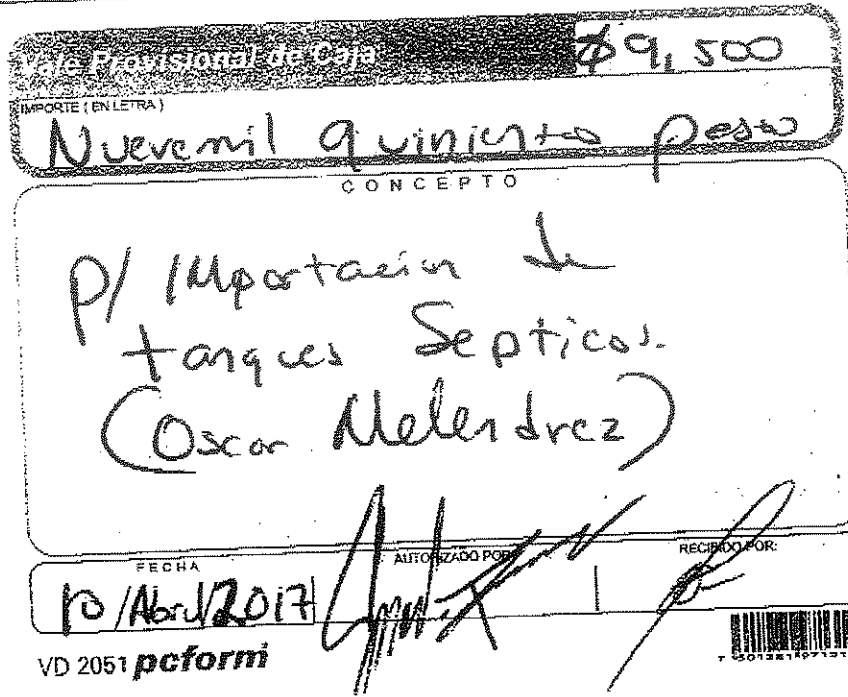 Vale Provisional de Caja
$9,500
IMPORTE (EN LETRA)
Nueve mil quinientos pesos
CONCEPTO
P/ Importacion de
tanques Septicos.
(Oscar Melendrez)
FECHA
AUTORIZADO POR:
RECIBIDO POR:
10/Abril/2017
VD 2051 pcform